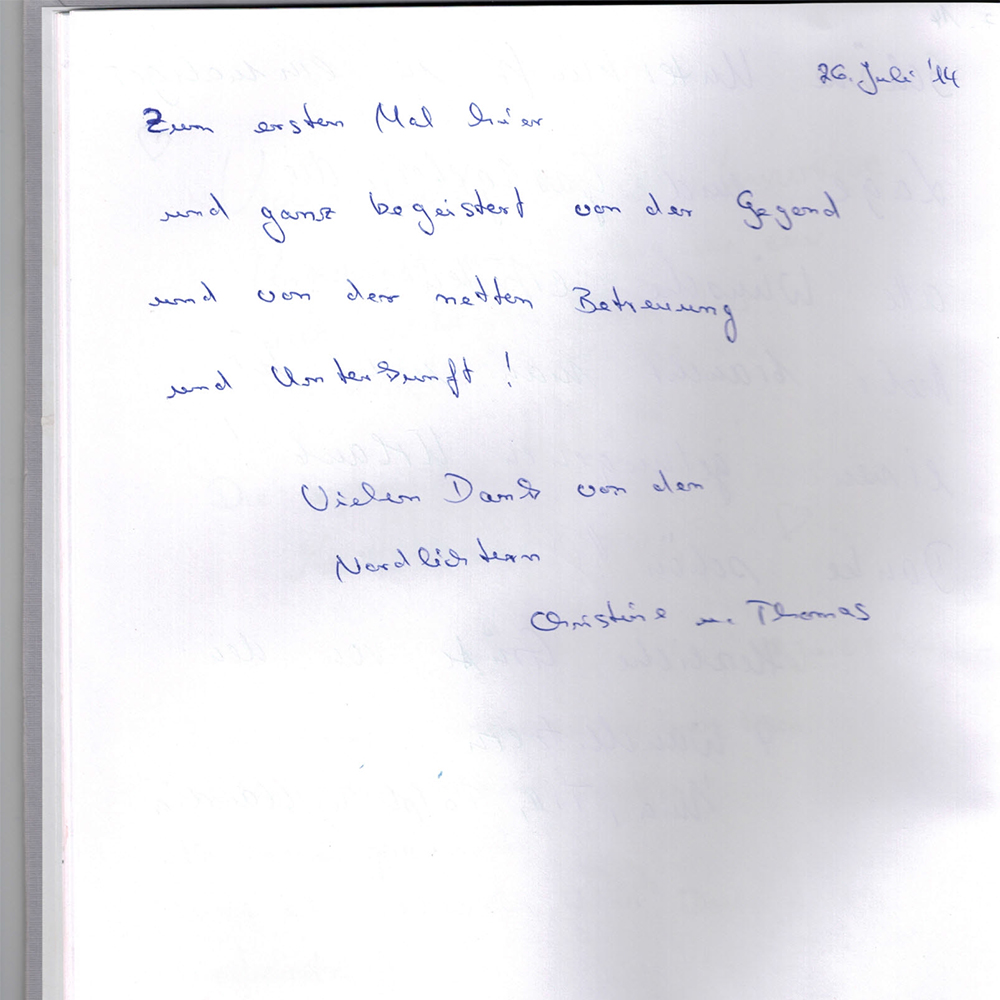 26. Juli '14
Zum ersten Mal hier
und ganz begeistert von der Gegend
und von der netten Betreuung
und Unterkunft !
Vielen Dank von den
Nordlichtern
Christine u. Thomas